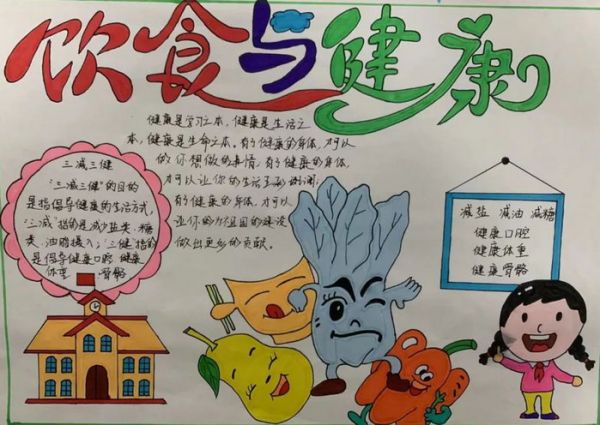 饮食与健康
健康是学习之本，健康是生活之
本，健康是生命之本。有了健康的身体，才可以
做你想做的事情，有了健康的身体，
才可以让你的生活多彩
有了健康的身体，才可以
让你的祖国的建设
做出更多的贡献。
三减三健
"三减三健"的目的
是指倡导健康的生活方式，
"三减"指的是减少盐类、糖
类、油脂摄入；"三健"指的
是倡导健康口腔 健康
体重 骨骼
减盐 减油 减糖
健康口腔
健康体重
健康骨骼